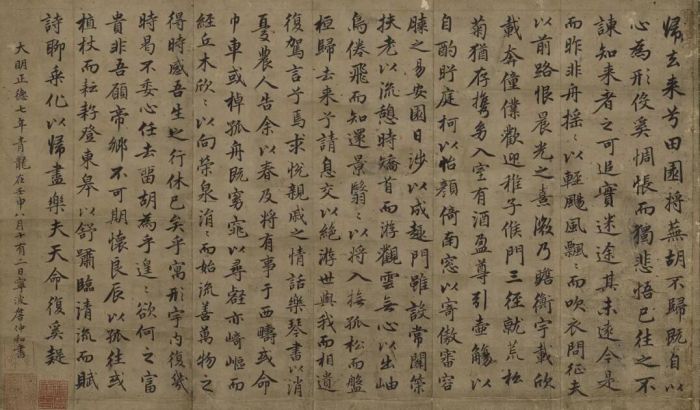 歸去來兮田園將蕪胡不歸既自以
心為形役奚惆悵而獨悲悟已往之不
諫知来者之可追實迷途其未遠今是
而昨非舟搖〻以輕颺風飄〻而吹衣問征夫
以前路恨晨光之熹微乃瞻衡宇載欣
載奔僮僕歡迎稚子候門三徑就荒松
菊猶存携㓜入室有酒盈尊引壺觴以
自酌眄庭柯以怡顏倚南窓以寄傲審容
膝之易安園日涉以成趣門雖設常關策
扶老以流憩時矯首而游觀雲無心以出岫
鳥倦飛而知還景翳〻以将入撫孤松而盤
桓歸去来兮請息交以絶游世與我而相遺
復駕言兮焉求悦親戚之情話樂琴書以消
憂農人告余以春及将有事于西疇或命
巾車或棹孤舟既窈窕以尋壑亦崎嶇而
經丘木欣〻以向榮泉涓〻而始流善萬物之
得時感吾生之行休已矣乎寓形宇内復幾
時曷不委心任去留胡為乎遑〻欲何之富
貴非吾願帝鄉不可期懷良辰以孤往或
植杖而耘耔登東皋以舒嘯臨清流而賦
詩聊乘化以歸盡樂夫天命復奚疑
大明正德七年青龍在壬申八月十有二日寧波詹仲和書